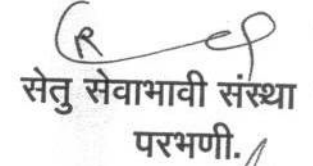 सेतु सेवाभावी संस्था
परभणी.